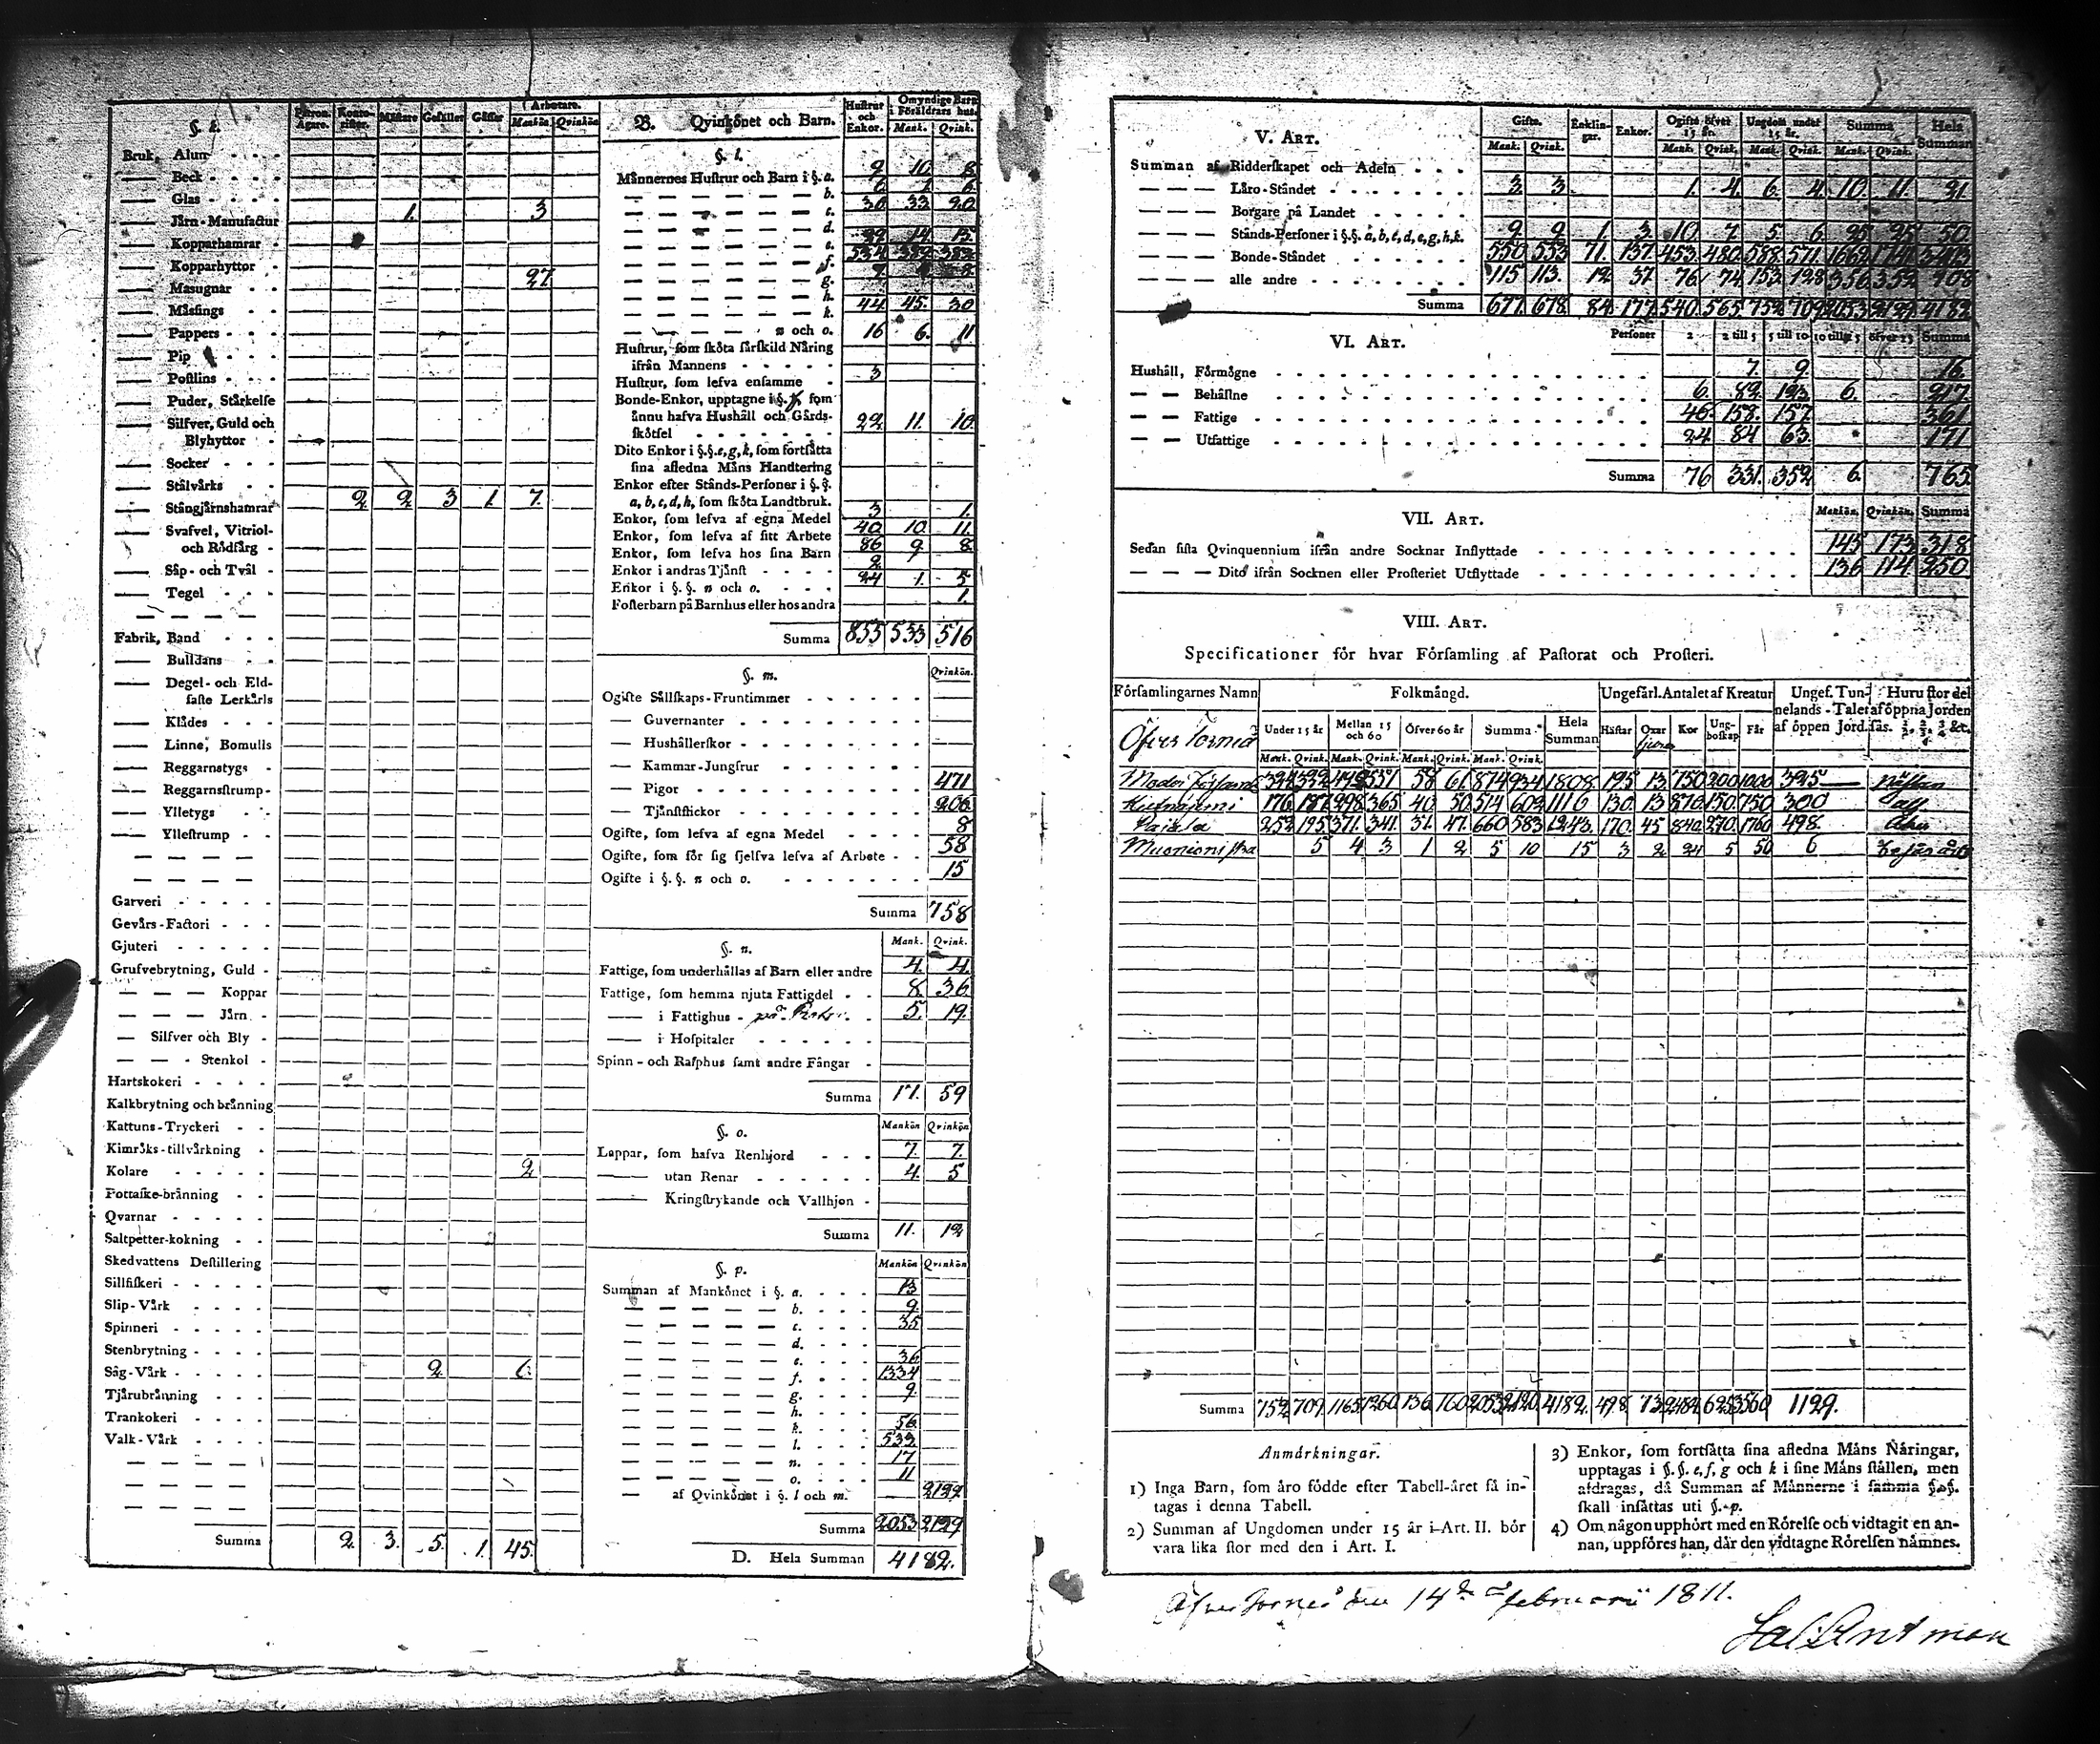 §. k. Patron. Ägare. Konto-rister. Mästare Gesäller Gåssar Arbetare. Mankön Qvinkön
Bruk, Alun
— Beck
— Glas
— Järn-Manufactur 1. 3
— Kopparhamrar
— Kopparhyttor
— Masugnar 27.
— Mässings
— Pappers
— Pip
— Postlins
— Puder, Stärkelse
— Silfver, Guld och
Blyhyttor
— Socker
— Stålvärks
— Stångjärnshamrar 2 2 3 1. 7.
— Svafvel, Vitriol-
och Rödfärg
— Såp- och Tvål
— Tegel
— — — —
Fabrik, Band
— Bulldans
— Degel- och Eld-
faste Lerkärls
— Klädes
— Linne, Bomulls
— Reggarnstygs
— Reggarnsstrump
— Ylletygs
— Yllestrump
— — — —
— — — —
Garveri
Gevärs-Factori
Gjuteri
Grufvebrytning, Guld
— — — Koppar
— — — Järn
— Silfver och Bly
— — Stenkol
Hartskokeri
Kalkbrytning och bränning
Kattuns-Tryckeri
Kimröks-tillvärkning
Kolare 2
Pottaske-bränning
Qvarnar
Saltpetter-kokning
Skedvattens Destillering
Sillfiskeri
Slip-Värk
Spinneri
Stenbrytning
Såg-Värk 2. 6.
Tjärubränning
Trankokeri
Valk-Värk
— — — —
— — — —
— — — —
Summa 2. 3. 5. 1. 45.
B. Qvinkönet och Barn. Hustrur och Enkor. Omyndige Barn i Föräldrars hus. Mank. Qvink.
§. l.
Männernes Hustrur och Barn i §. a. 9 10. 8
— — — — — — b.
— — — — — — c. 30 33 20
— — — — — — d.
— — — — — — e.
— — — — — — f.
— — — — — — g.
— — — — — — h.
— — — — — — k. 44 45. 30
— — — — n och o. 16 6. 11
Hustrur, som sköta särskild Näring
ifrån Mannens
Hustrur, som lefva ensamme 3
Bonde-Enkor, upptagne i §. f. som
ännu hafva Hushåll och Gårds-
skötsel 22 11. 10.
Dito Enkor i §.§. e, g, k, som fortsätta
sina afledna Mäns Handtering
Enkor efter Stånds-Personer i §.§.
a, b, c, d, h, som sköta Landtbruk.
Enkor, som lefva af egna Medel 3 1.
Enkor, som lefva af sitt Arbete 40 10 11.
Enkor, som lefva hos sina Barn 86 9 8
Enkor i andras Tjänst 2
Enkor i §.§. n och o. 24 1. 5
Fosterbarn på Barnhus eller hos andra 1.
Summa 855 533 516
§. m. Qvinkön.
Ogifte Sällskaps-Fruntimmer
— Guvernanter
— Hushållerskor
— Kammar-Jungfrur
— Pigor 471
— Tjänstflickor 206
Ogifte, som lefva af egna Medel 8
Ogifte, som för sig sjelfva lefva af Arbete 58
Ogifte i §.§. n och o. 15
Summa 758
§. n. Mank. Qvink.
Fattige, som underhållas af Barn eller andre 4. 4.
Fattige, som hemma njuta Fattigdel 8. 36
— i Fattighus - 5. 19.
— i Hospitaler
Spinn- och Rasphus samt andre Fångar
Summa 17. 59
§. o. Mankön Qvinkön
Lappar, som hafva Renhjord 7. 7.
— utan Renar 4. 5
— Kringstrykande och Vallhjon
Summa 11. 12
§. p. Mankön Qvinkön
Summan af Mankönet i §. a. 13
— — — — — b. 9
— — — — — c. 35
— — — — — d.
— — — — — e. 36
— — — — — f. 1334
— — — — — g. 9
— — — — — h.
— — — — — k. 56
— — — — — l. 533
— — — — — n. 17
— — — — — o. 11
— af Qvinkönet i §. l och m. 2129
Summa 2053 2129
D. Hela Summan 4182.
V. ART. Gifte. Mank. Qvink. Enklin-gar. Enkor. Ogifte öfver 15 år. Mank. Qvink. Ungdom under 15 år. Mank. Qvink. Summa Mank. Qvink. Hela Summan
Summan af Ridderskapet och Adeln
— — — Läro-Ståndet 3 3 1. 4. 6. 4. 10. 11. 21.
— — — Borgare på Landet
— — — Stånds-Personer i §.§. a, b, c, d, e, g, h, k. 9. 9 1 3. 10. 7. 5 6 25 25 50
— — — Bonde-Ståndet 550 553 71. 137. 453. 480. 588. 571. 1662 1741 3403
— — — alle andre 115 113. 12 37. 76. 74 153. 128 356 352 708
Summa 677. 678. 84. 177. 540. 565. 752. 709 2053 2129 4182
VI. ART. Personer 2 2 till 5 5 till 10 10 till 15 öfver 15 Summa
Hushåll, Förmögne 7. 9. 16.
— — Behållne 6. 82 123 6. 217.
— — Fattige 46. 158. 157 361
— — Utfattige 24. 84 63. 171
Summa 76 331. 352 6. 765
VII. ART. Mankön. Qvinkön. Summa
Sedan sista Qvinquennium ifrån andre Socknar Inflyttade 145 173 318
— — — Dito ifrån Socknen eller Prosteriet Utflyttade 136 114 250
VIII. ART.
Specificationer för hvar Församling af Pastorat och Prosteri.
Församlingarnes Namn Folkmängd. Ungefärl. Antalet af Kreatur Ungef. Tun-nelands-Talet af öppen Jord. Huru stor del af öppna Jorden sås. ½, ⅔, ¾ &c.
Öfver Torneå Under 15 år Mellan 15 och 60 Öfver 60 år Summa Hela Summan Hästar Oxar Kor Ung-boskap Får
Mank. Qvink. Mank. Qvink. Mank. Qvink. Mank. Qvink.
Moder Församl 324 322 492 551 58 61. 874 934 1808. 195 13. 750 200 1000 325
176 187 298 365 40 50 514 602 1116 130 13 870 150 750 300
Pajala 252 195 371. 341. 37. 47. 660 583 1243. 170. 45 840 270 1760 498.
Muonioniska 5 4 3 1 2 5 10 15 3 2 24 5 50 6
Summa 752 709 1165 1260 136 160 2053 2129 4182. 498. 73 2484 625 3560 1129.
Anmärkningar.
1) Inga Barn, som äro födde efter Tabell-året få in-
tagas i denna Tabell.
2) Summan af Ungdomen under 15 år i Art. II. bör
vara lika stor med den i Art. I.
3) Enkor, som fortsätta sina afledna Mäns Näringar,
upptagas i §.§. e, f, g och k i sine Mäns ställen, men
afdragas, då Summan af Männerne i samma §.§.
skall insättas uti §. p.
4) Om någon upphört med en Rörelse och vidtagit en an-
nan, uppföres han, där den vidtagne Rörelsen nämnes.
Öfver Torneå den 14de Februarii 1811.
Sal: Antman